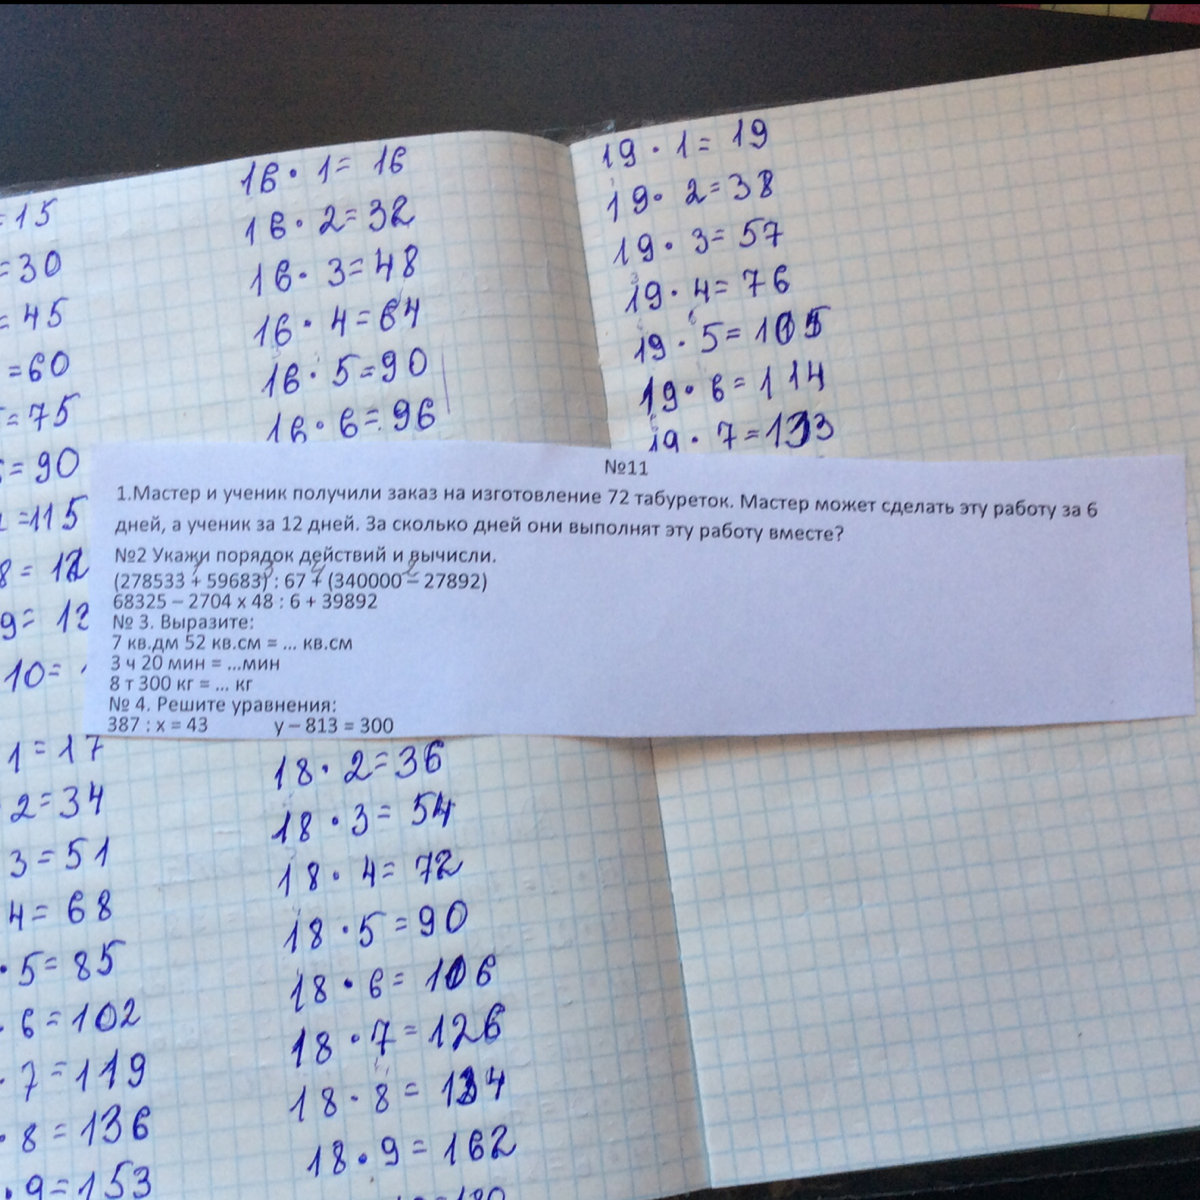 =15
=30
=45
=60
=75
=90
=115
8=
9=
10=
16·1=16
16·2=32
16·3=48
16·4=64
16·5=90
16·6=96
19·1=19
19·2=38
19·3=57
19·4=76
19·5=105
19·6=114
19·7=133
№11
1.Мастер и ученик получили заказ на изготовление 72 табуреток. Мастер может сделать эту работу за 6
дней, а ученик за 12 дней. За сколько дней они выполнят эту работу вместе?
№2 Укажи порядок действий и вычисли.
(278533 + 59683) : 67 + (340000 – 27892)
68325 – 2704 х 48 : 6 + 39892
№ 3. Выразите:
7 кв.дм 52 кв.см = ... кв.см
3 ч 20 мин = ...мин
8 т 300 кг = ... кг
№ 4. Решите уравнения:
387 : х = 43 у – 813 = 300
1=17
2=34
3=51
4=68
·5=85
·6=102
·7=119
·8=136
·9=153
18·2=36
18·3=54
18·4=72
18·5=90
18·6=106
18·7=126
18·8=134
18·9=162